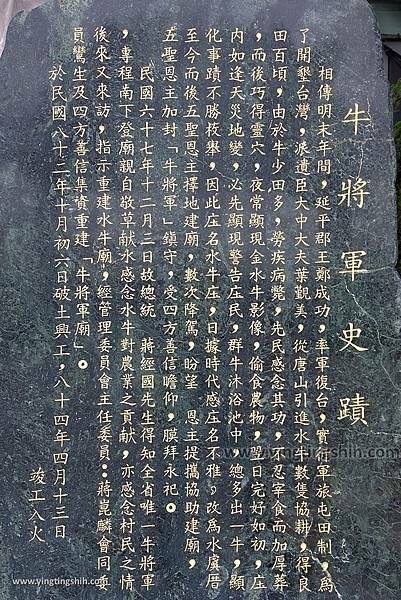 牛將軍史蹟
相傳明末年間，延平郡王鄭成功，率軍復台，實行軍旅屯田制，為
了開墾台灣，派遣臣大中大夫葉覲美，從唐山引進水牛數隻協耕，得良
田百頃，由於牛少田多，勞疾病斃，先民感念其功，不忍宰食而加厚葬
，而後巧得靈穴，夜常顯現金水牛影像，偷食農物，翌日完好如初，庄
內如逢天災地變，必先顯現警告庄民，群牛沐浴池中，總多出一牛，顯
化事蹟不勝枚舉，因此庄名水牛庄，日據時代感庄名不雅，改為水虞厝
至今而後五聖恩主擇地建廟，數次降駕，盼望　恩主提攜協助建廟，
五聖恩主加封「牛將軍」鎮守，受四方善信瞻仰，膜拜永祀。
民國六十七年十二月三日故總統　蔣經國先生得知全省唯一牛將軍
，專程南下登廟親自敬草献水感念水牛對農業之貢献，亦感念村民之情
後來又來訪，指示重建水牛廟，經管理委員會主任委員：蔣崑麟會同委
員鸞生及四方善信集資重建「牛將軍廟」。
於民國八十二年十月初六日破土興工，八十四年四月十三日
竣工入火
www.yingtingshih.com
www.yingtingshih.com